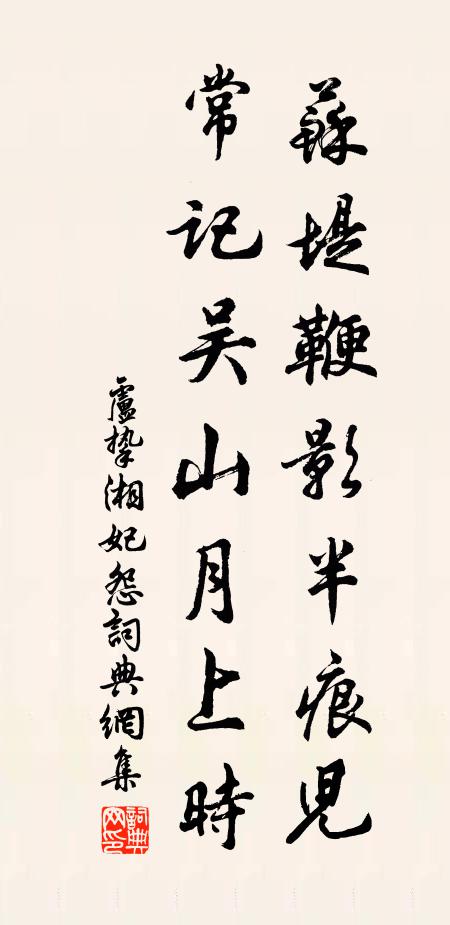 蘇堤鞭影半痕兒
常記吴山月上時
盧摯湘妃怨詞典網集
詞典网印